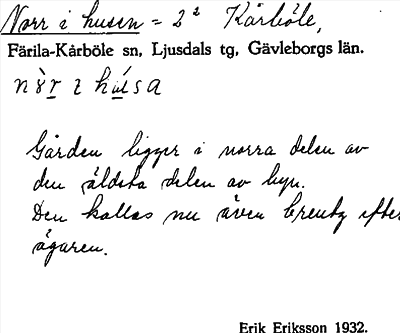 Norr i husen = 2² Kårböle,
Färila-Kårböle sn, Ljusdals tg, Gävleborgs län.
Gården ligger i norra delen av
den äldsta delen av byn.
Den kallas nu även Creutz efter
ägaren.
Erik Eriksson 1932.